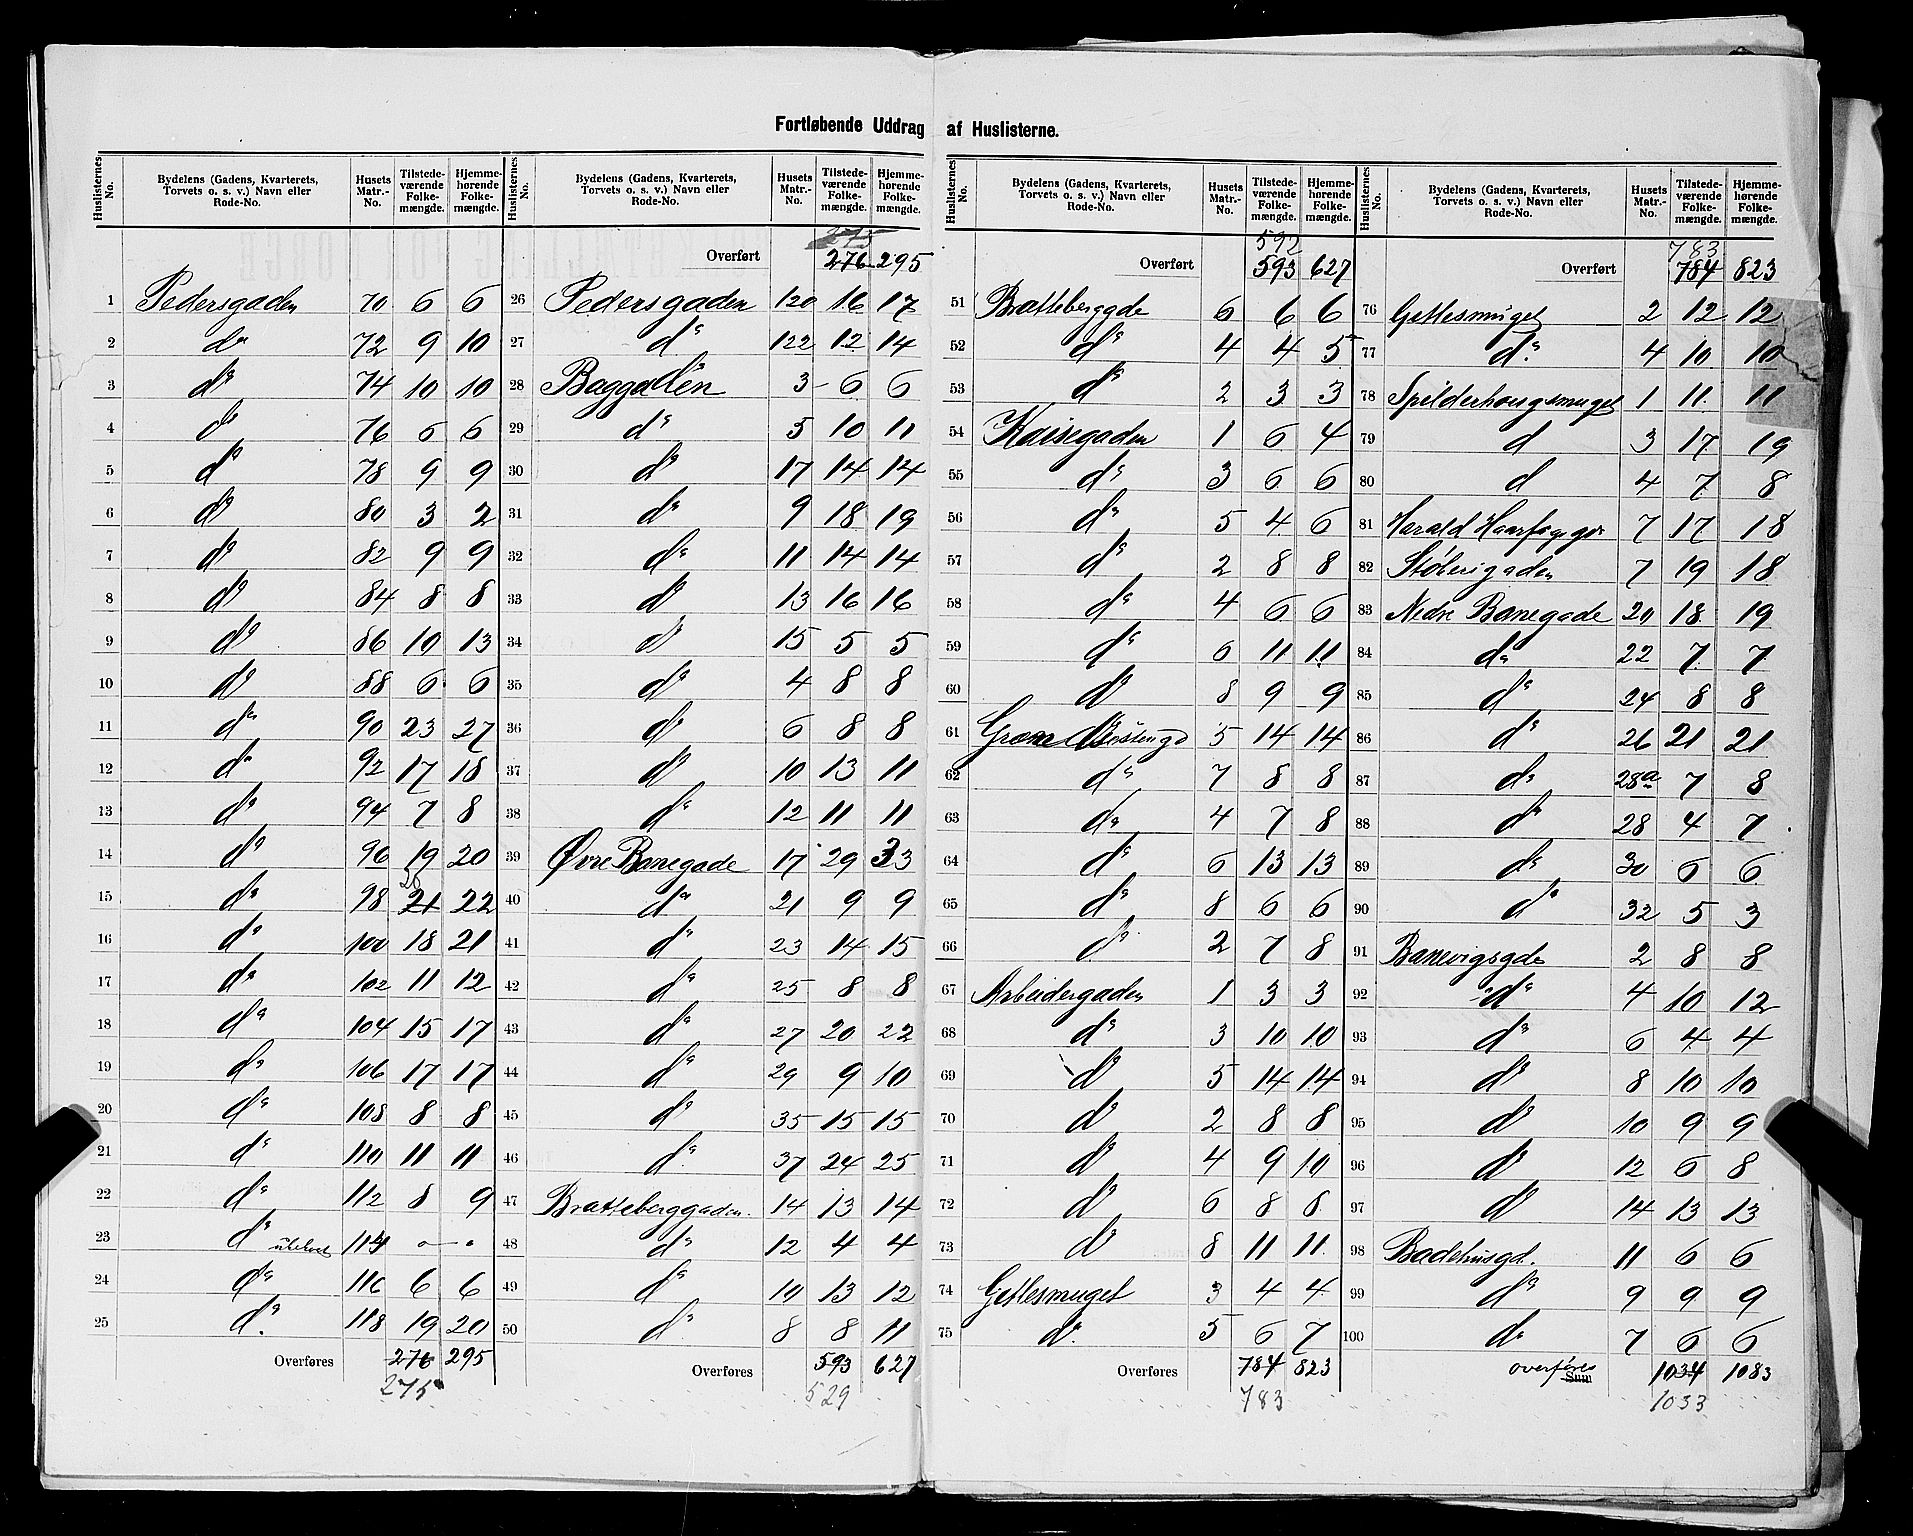 Fortløbende Uddrag af Huslisterne.
Huslisternes No. | Bydelens (Gadens, Kvarterets, Torvets o. s. v.) Navn eller Rode-No. | Husets Matr.-No. | Tilstedeværende Folkemængde. | Hjemmehørende Folkemængde.
1 Pedersgaden 70 6 6
2 do 72 9 10
3 do 74 10 10
4 do 76 6 6
5 do 78 9 9
6 do 80 3 2
7 do 82 9 9
8 do 84 8 8
9 do 86 10 13
10 do 88 6 6
11 do 90 23 27
12 do 92 17 18
13 do 94 7 8
14 do 96 19 20
15 do 98 21 20 22
16 do 100 18 21
17 do 102 11 12
18 do 104 15 17
19 do 106 17 17
20 do 108 8 8
21 do 110 11 11
22 do 112 8 9
23 do ubeboet 114 - -
24 do 116 6 6
25 do 118 19 20
Overføres 276 295
275
Huslisternes No. | Bydelens (Gadens, Kvarterets, Torvets o. s. v.) Navn eller Rode-No. | Husets Matr.-No. | Tilstedeværende Folkemængde. | Hjemmehørende Folkemængde.
275
Overført 276 295
26 Pedersgaden 120 16 17
27 do 122 12 14
28 Baggaden 3 6 6
29 do 5 10 11
30 do 17 14 14
31 do 9 18 19
32 do 11 14 14
33 do 13 16 16
34 do 15 5 5
35 do 4 8 8
36 do 6 8 8
37 do 10 13 11
38 do 12 11 11
39 Øvre Banegade 17 29 33
40 do 21 9 9
41 do 23 14 15
42 do 25 8 8
43 do 27 20 22
44 do 29 9 10
45 do 35 15 15
46 do 37 24 25
47 Bratteberggaden. 14 13 14
48 do 12 4 4
49 do 10 13 12
50 do 8 8 11
Overføres 593 627
529
Huslisternes No. | Bydelens (Gadens, Kvarterets, Torvets o. s. v.) Navn eller Rode-No. | Husets Matr.-No. | Tilstedeværende Folkemængde. | Hjemmehørende Folkemængde.
592
Overført 593 627
51 Bratteberggde 6 6 6
52 do 4 4 5
53 do 2 3 3
54 Kaisegaden 1 6 4
55 do 3 6 6
56 do 5 4 6
57 do 2 8 8
58 do 4 6 6
59 do 6 11 11
60 do 8 9 9
61 5 14 14
62 do 7 8 8
63 do 4 7 8
64 do 6 13 13
65 do 8 6 6
66 do 2 7 8
67 Arbeidergaden 1 3 3
68 do 3 10 10
69 do 5 14 14
70 do 2 8 8
71 do 4 9 10
72 do 6 8 8
73 do 8 11 11
74 Getlesmuget 3 4 4
75 do 5 6 7
Overføres 784 823
783
Huslisternes No. | Bydelens (Gadens, Kvarterets, Torvets o. s. v.) Navn eller Rode-No. | Husets Matr.-No. | Tilstedeværende Folkemængde. | Hjemmehørende Folkemængde.
783
Overført 784 823
76 Getlesmuget 2 12 12
77 do 4 10 10
78 Spilderhougsmuget 1 11 11
79 d 3 17 19
80 d 4 7 8
81 Harald 7 17 18
82 Støberigaden 7 19 18
83 Nedre Banegade 20 18 19
84 do 22 7 7
85 do 24 8 8
86 do 26 21 21
87 do 28a 7 8
88 do 28 4 7
89 do 30 6 6
90 do 32 5 3
91 Banevigsgde 2 8 8
92 do 4 10 12
93 do 6 4 4
94 do 8 10 10
95 do 10 9 9
96 do 12 6 8
97 do 14 13 13
98 Badehusgd. 11 6 6
99 do 9 9 9
100 do 7 6 6
overføres Sum 1034 1083
1033